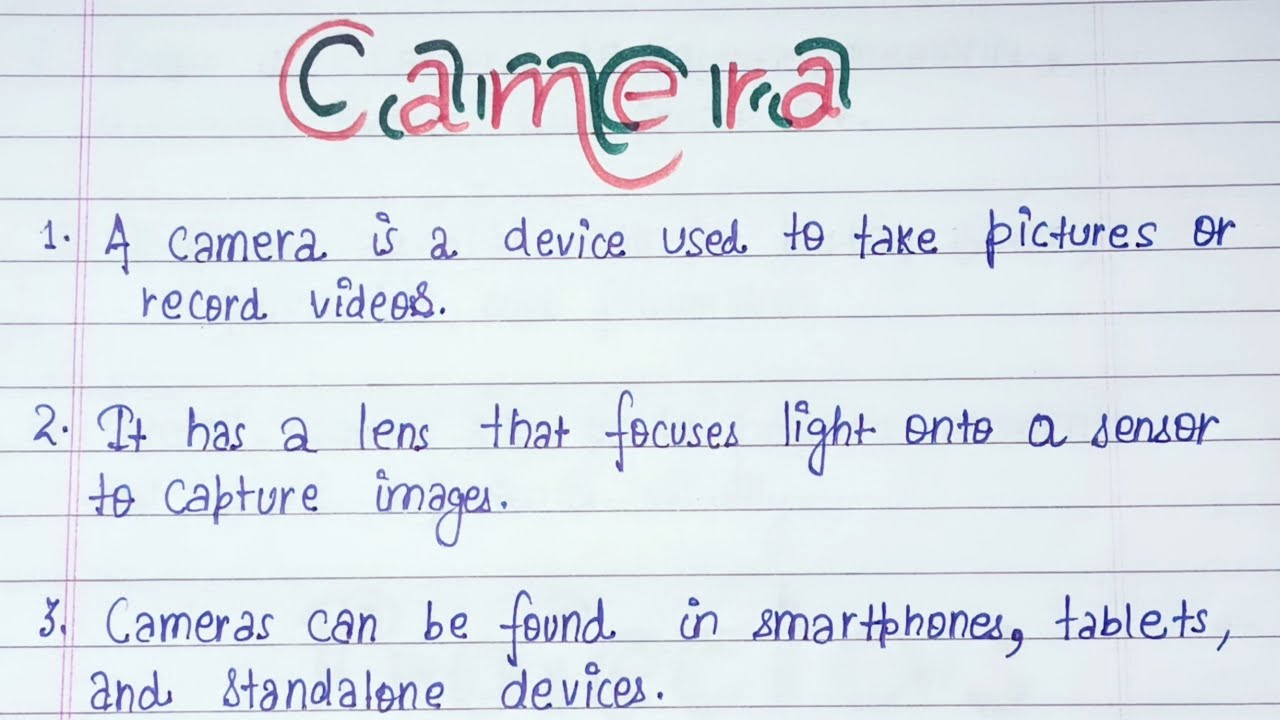 Camera
1. A camera is a device used to take pictures or
record videos.
2. It has a lens that focuses light onto a sensor
to capture images.
3. Cameras can be found in smartphones, tablets,
and standalone devices.